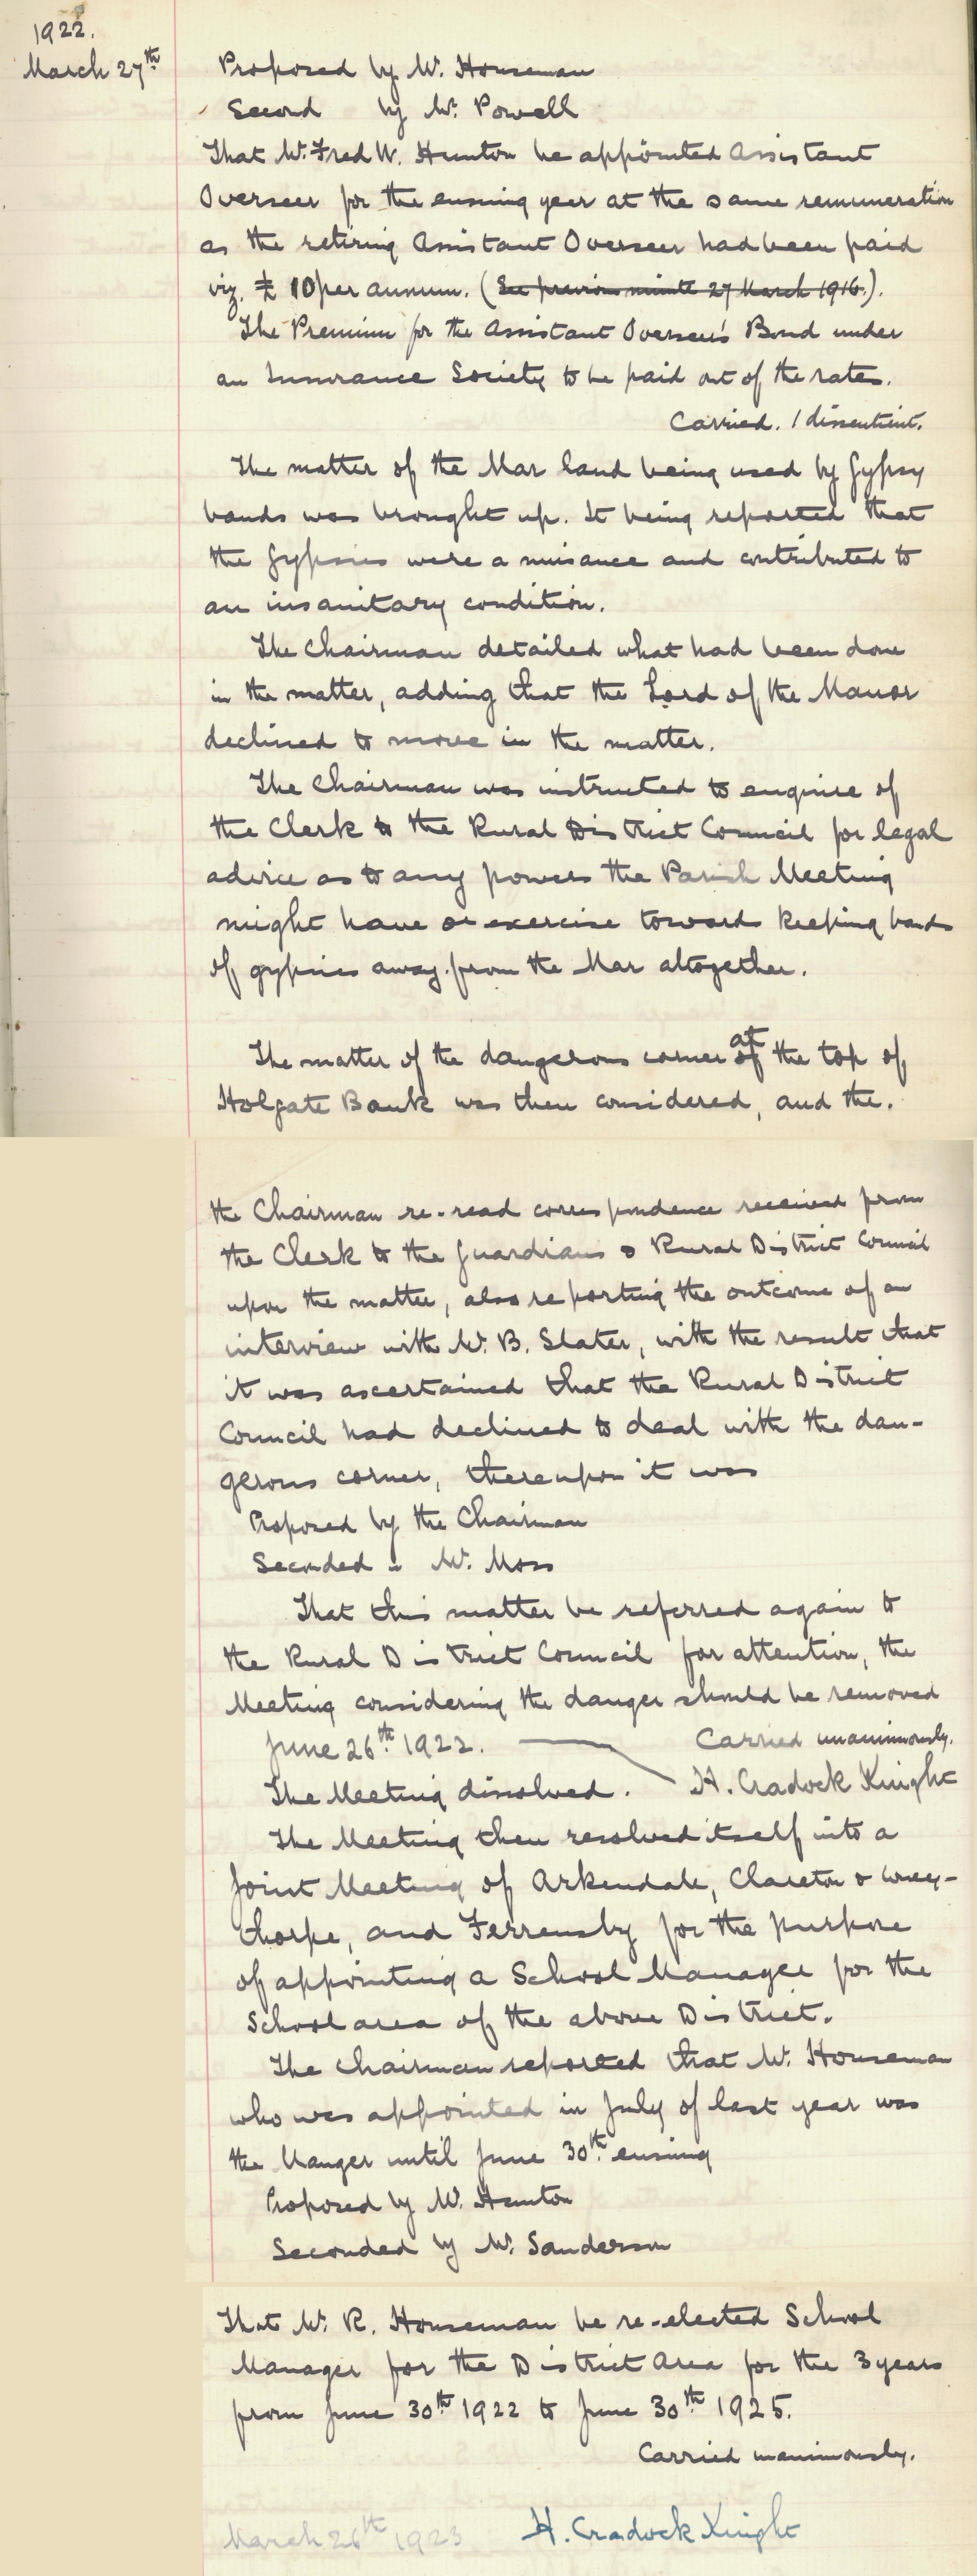 1922.
March 27th
Proposed by Mr. Houseman
Second by Mr. Powell
That Mr. Fred W. Hunton be appointed Assistant
Overseer for the ensuing year at the same remuneration
as the retiring Assistant Overseer had been paid
viz. £ 10 per annum. (See previous minute 27 March 1916.).
The Premium for the Assistant Overseer's Bond under
an Insurance Society to be paid out of the rates.
Carried. 1 dissentient.
The matter of the Mar land being used by Gypsy
bands was brought up. It being reported that
the Gypsies were a nuisance and contributed to
an insanitary condition.
The Chairman detailed what had been done
in the matter, adding that the Lord of the Manor
declined to move in the matter.
The Chairman was instructed to enquire of
the Clerk to the Rural District Council for legal
advice as to any powers the Parish Meeting
might have or exercise towards keeping bands
of gypsies away from the Mar altogether.
The matter of the dangerous corner of at the top of
Holgate Bank was then considered, and the.
the Chairman re-read correspondence received from
the Clerk to the Guardians & Rural District Council
upon the matter, also reporting the outcome of an
interview with Mr. B. Slater, with the result that
it was ascertained that the Rural District
Council had declined to deal with the dan-
gerous corner, thereupon it was
Proposed by the Chairman
Seconded " Mr. Moss
That this matter be referred again to
the Rural District Council for attention, the
Meeting considering the danger should be removed
Carried unanimously.
June 26th. 1922.
The Meeting dissolved. H. Cradock Knight
The Meeting then resolved itself into a
Joint Meeting of Arkendale, Clareton & Coney-
thorpe, and Ferrensby for the purpose
of appointing a School Manager for the
School area of the above District.
The Chairman reported that Mr. Houseman
who was appointed in July of last year was
the Manger until June 30th. ensuing
Proposed by Mr. Hunton
Seconded by Mr. Sanderson
That Mr. R. Houseman be re-elected School
Manager for the District Area for the 3 years
from June 30th 1922 to June 30th 1925.
Carried unanimously.
March 26th 1923 H. Cradock Knight